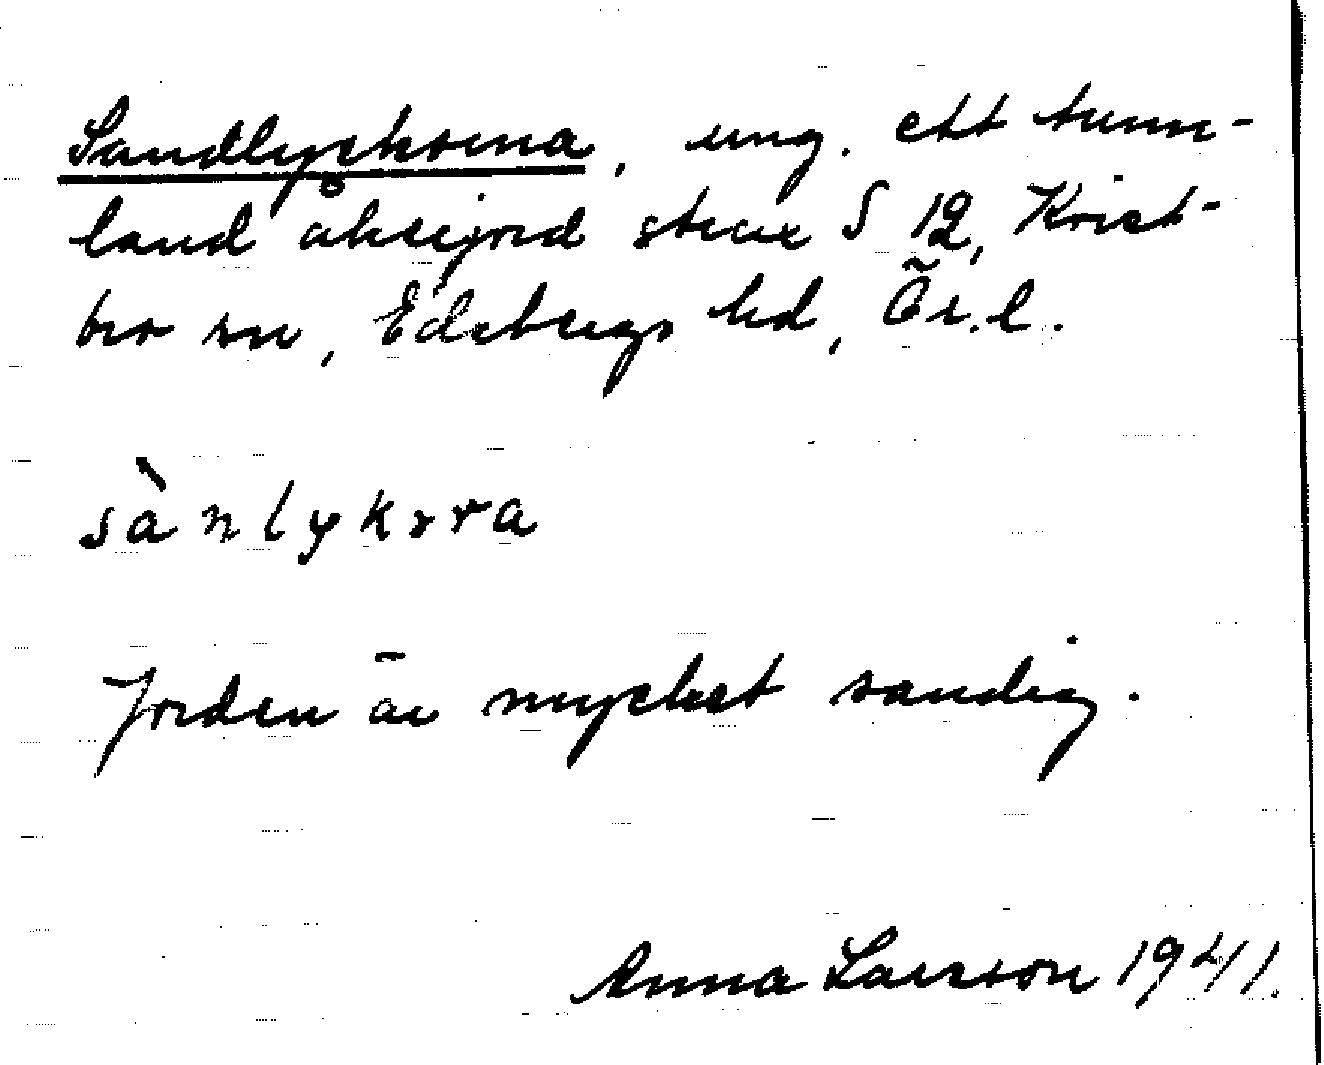 Sandlyckorna, ung. ett tunn-
land åkerjord strax S 12, Krist-
bro sn, Edsbergs hd, Ör. l.
sànlykɷra
Jorden är mycket sandig.
Anna Larsson 1941.